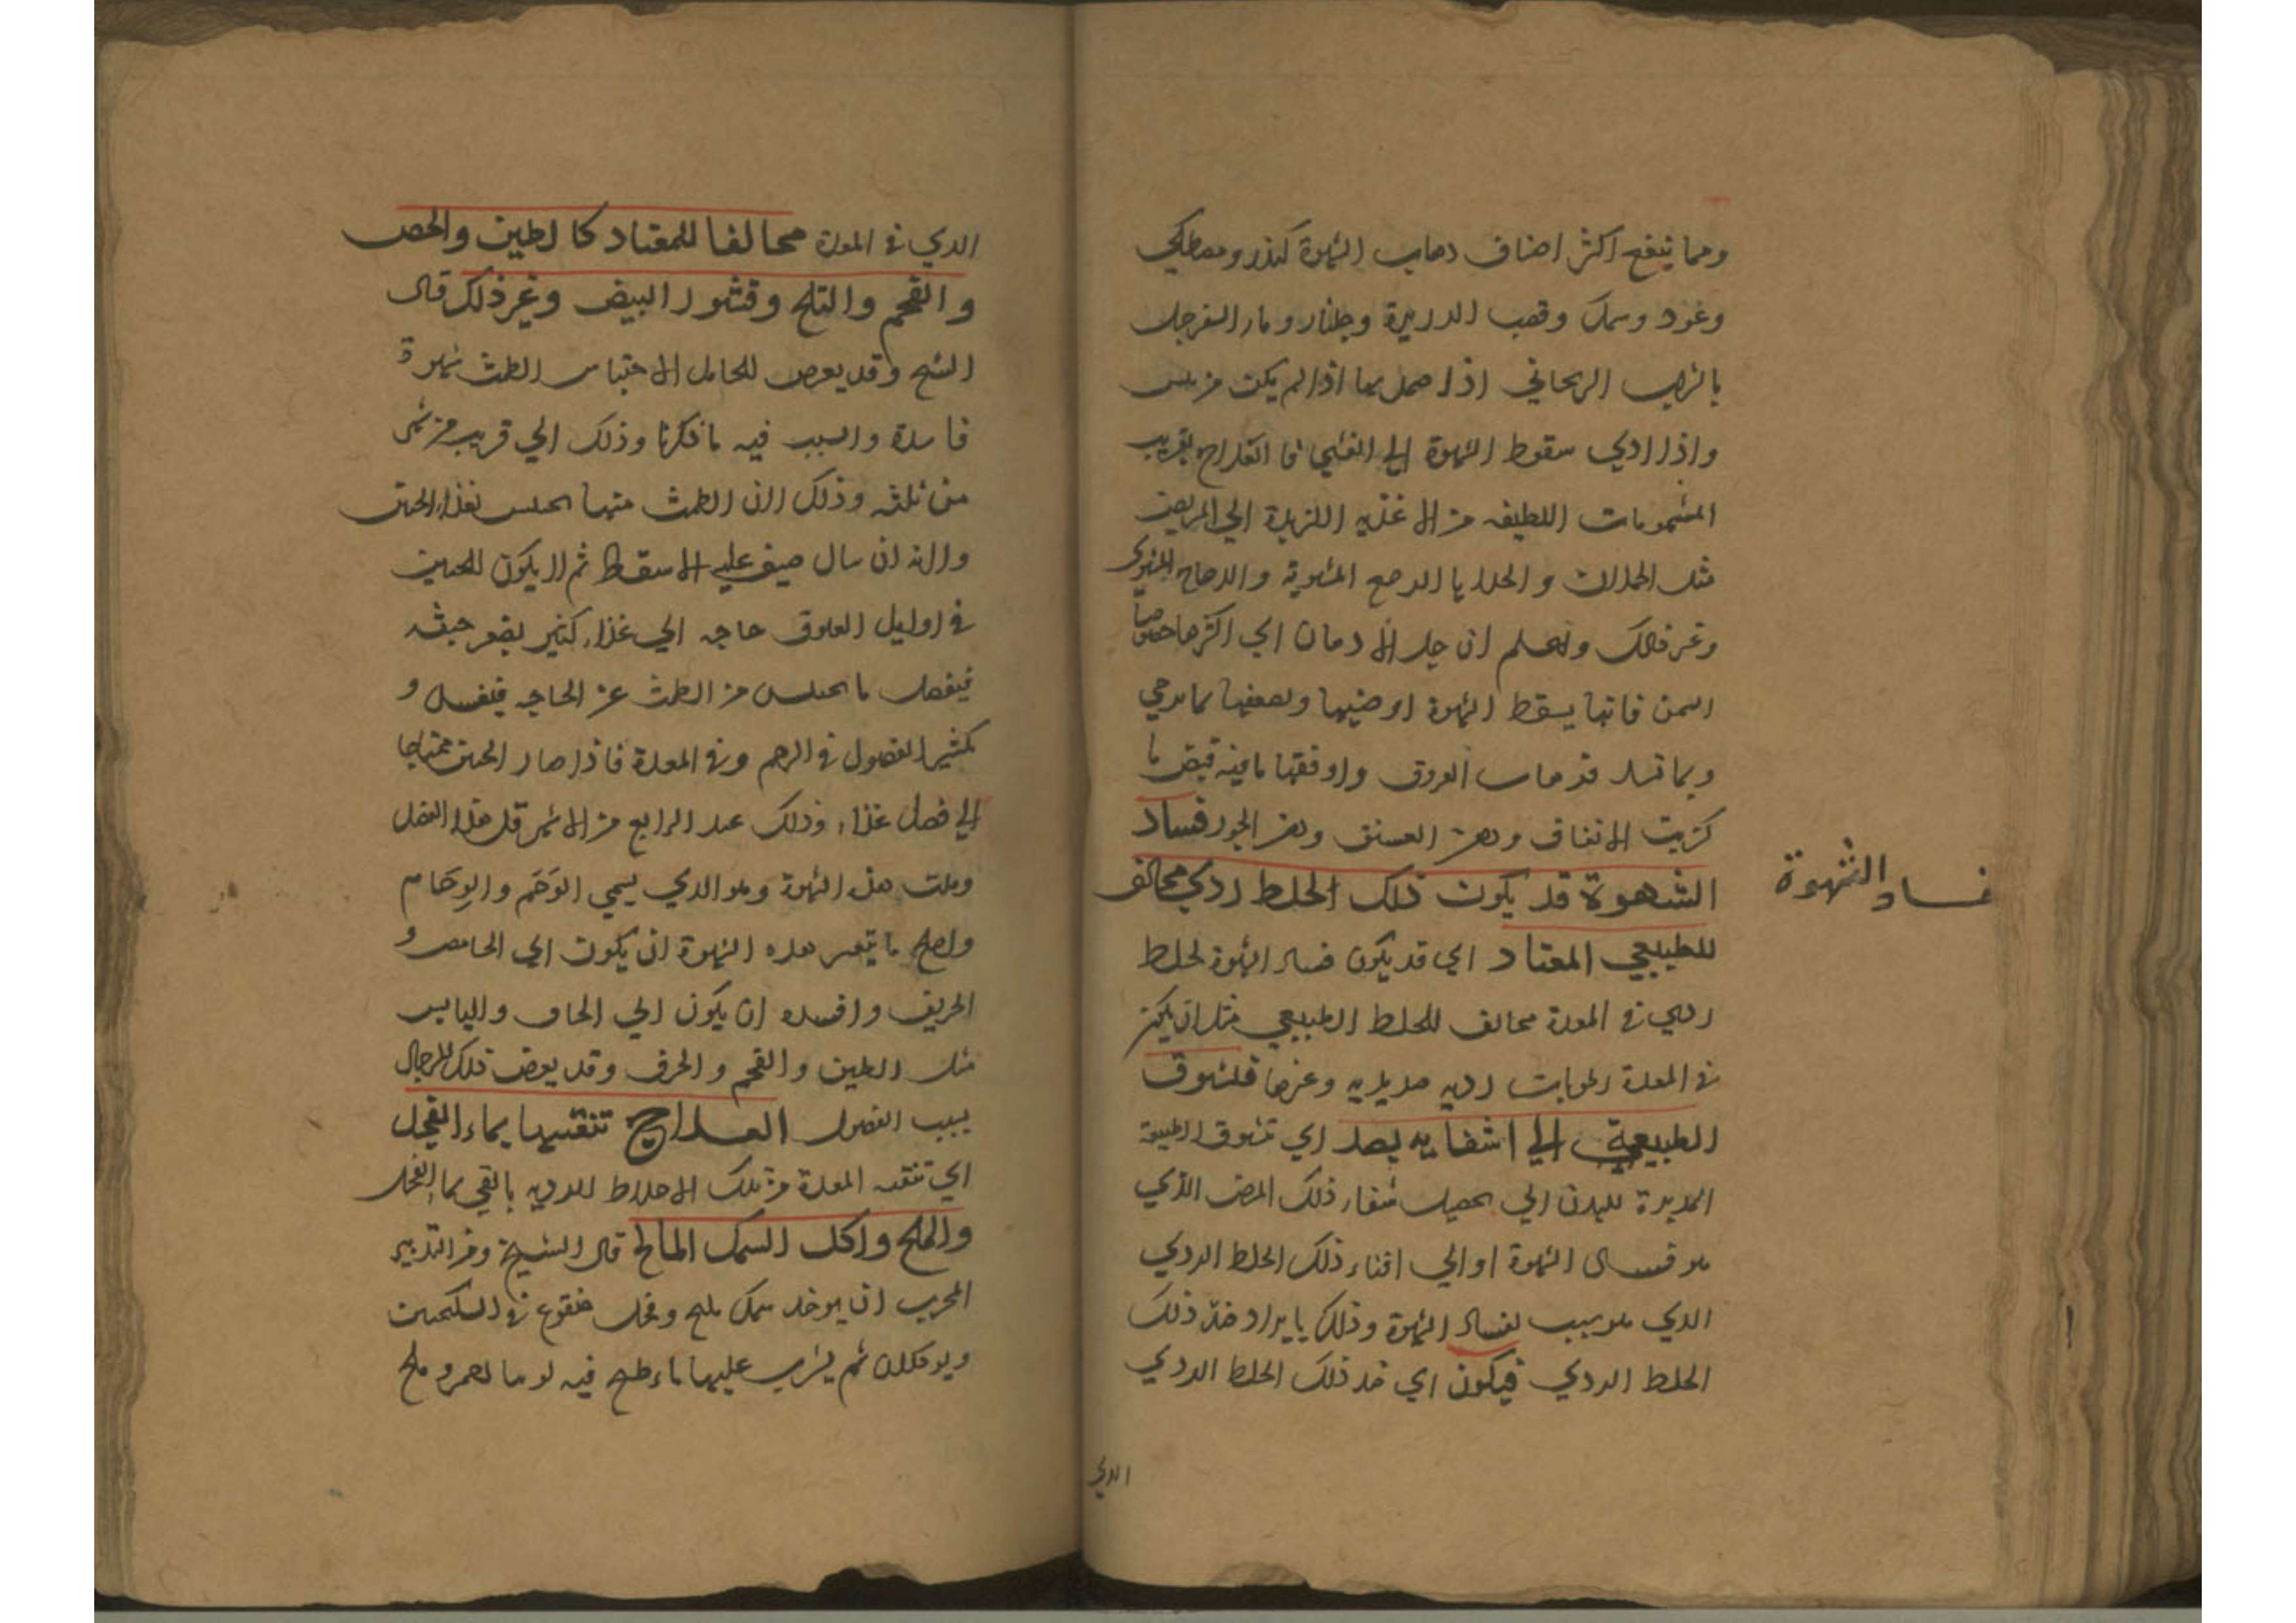 ومما ينفع اكثر اصناف دهاب الشهوة كندر ومصطكي
وعود وسك وقصب الدريرة وجلنار وماء السفرجل
بالشراب الريحاني اذا ضمد بها اذا لم يكن من يبس
واذا ادي سقوط الشهوة الي الغشي فالعلاج تقريب
المشمومات اللطيفه من الاغذيه اللزيزة الي المريض
مثل الحملان و الجدايا الرضع المشوية والدجاج المشوي
وغير ذلك ولتعلم ان جل الادهان اي اكثرها خصوصا
السمن فانها يسقط الشهوة او ضنيها وتضعفها بما ترخي
وبما تسد فوهات العروق واوفقها ما فيه قبض ما
كزيت الانفاق ودهن الفستق ودهن الجوز فساد
الشهوة قد يكون ذلك الخلط ردي مخالف
للطبيعي المعتاد اي قد يكون فساد الشهوة لخلط
ردي في المعدة مخالف للخلط الطبيعي مثل ان يكثر
في المعدة رطوبات رديه صديديه وغيرها فتشوق
الطبيعية الي اشفايه بضد اي تشوق الطبيعة
المدبرة للبدن الي تحصيل شفاء ذلك المرض الذي
هو فساد الشهوة او الي افناء ذلك الخلط الردي
الدي هو سبب لفساد الشهوة وذلك بايراد ضد ذلك
الخلط الردي فيكون اي ضد ذلك الخلط الردي
الدي
فساد الشهوة
الدي في المعدة مخالفا للمعتاد كالطين والجص
والفحم والثلج وقشور البيض وغير ذلك قال
الشيخ وقد يعرض للحامل لاحتباس الطمث شهوة
فاسدة والسبب فيه ما ذكرنا وذلك الي قريب من شهر
من ثلثه وذلك لان الطمث منها يحتبس لغذاء الجنين
ولانه ان سال خيف عليه الاسقاط ثم لا يكون للجنين
في اوايل العلوق حاجه الي غذاء كثير لصغر جثته
فيفضل ما يحتبس من الطمث عن الحاجه فيفسد و
يكثر الفضول في الرحم وفي المعدة فاذا صار الجنين محتاجا
الي فضل غذاء وذلك عند الرابع من الاشهر قل هذا الفضل
وقلت هذه الشهوة وهو الذي يسمي الوحم والوحام
واصلح ما يتغير هذه الشهوة ان يكون الي الحامض و
الحريف وافسده ان يكون الي الجاف واليابس
مثل الطين والفحم والخزف وقد يعرض ذلك للرجال
بسبب الفضول العلاج تنقيتها بماء الفجل
اي تنقيه المعدة من تلك الاخلاط الرديه بالقي بماء الفجل
والملح واكل السمك المالح قال الشيخ ومن التدبير
المجرب ان يوخذ سمك مليح وفجل منقوع في السكنجبين
ويوكلان ثم يشرب عليهما ماء طبخ فيه لوبيا احمر وملح